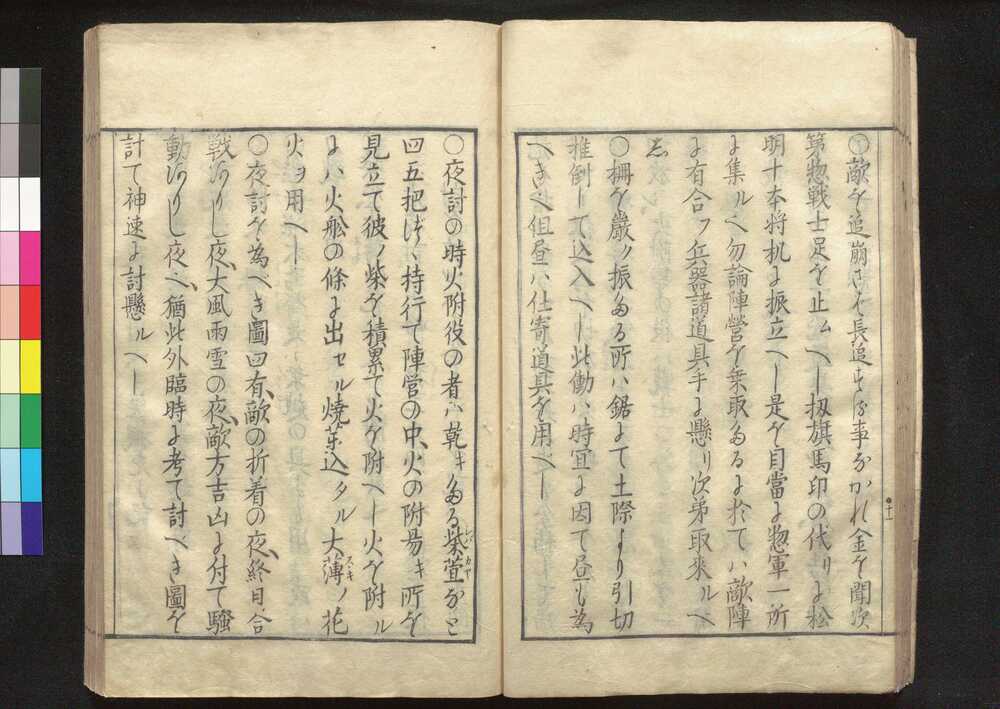 ○敵を追崩さば長追する事なかれ金を聞次
第惣戦士足を止ムヘし扨旗馬印の代りに松
明十本将机に振立へし是を目當に惣軍一所
に集ルヘし勿論陣營を乗取たるに於てハ敵陣
に有合フ兵器諸道具手に懸リ次第取來ルヘ
し
○柵を嚴ク振たる所ハ鋸にて土際より引切
推倒して込入へし此働ハ時宜に因て昼も為
へき也但昼ハ仕寄道具を用へし
十一
○夜討の時火附役の者ハ乾キたる柴萱なと
四五把ばかり持行て陣営の中火の附易キ所を
見立て彼ノ柴を積累て火を附へし火を附ル
にハ火舩の條に出セル焼薬込タル大薄ノ花
火ヲ用へし
シバ カヤ
スヽキ
○夜討を為べき圖四有敵の折着の夜終日合
戦ありし夜大風雨雪の夜敵方吉凶に付て騒
動ありし夜也猶此外臨時に考て討べき圖を
計て神速に討懸ルへし